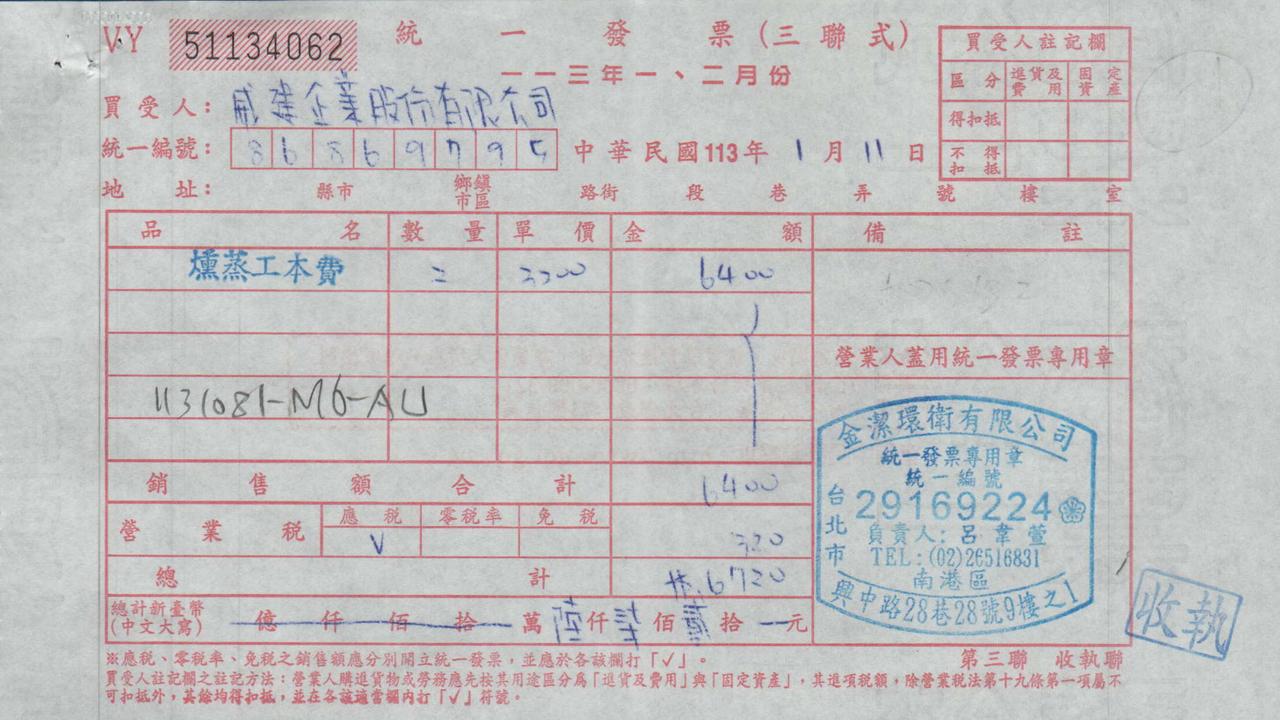 VY 51134062 統一發票(三聯式)
一一三年一、二月份
買受人註記欄
區分 進貨及費用 固定資產
得扣抵
不得扣抵
買受人: 威建企業股份有限公司
統一編號: 86869795 中華民國113年1月11日
地址: 縣市 鄉鎮市區 路街 段 巷 弄 號 樓 室
品名 數量 單價 金額 備註
燻蒸工本費 二 3200 6400
營業人蓋用統一發票專用章
1131081-M6-AU
銷售額合計 6400
營業稅 應稅 零稅率 免稅
V 320
總計 6720
總計新臺幣(中文大寫) 億仟佰拾萬陸仟柒佰貳拾一元
金潔環衛有限公司
統一發票專用章
統一編號
29169224
負責人:呂韋萱
TEL:(02)26516831
台北市南港區
興中路28巷28號9樓之1
收執
※應稅、零稅率、免稅之銷售額應分別開立統一發票,並應於各該欄打「✓」。
第三聯 收執聯
買受人註記欄之註記方法:營業人購進貨物或勞務應先按其用途區分為「進貨及費用」與「固定資產」,其進項稅額,除營業稅法第十九條第一項屬不
可扣抵外,其餘均得扣抵,並在各該適當欄內打「✓」符號。